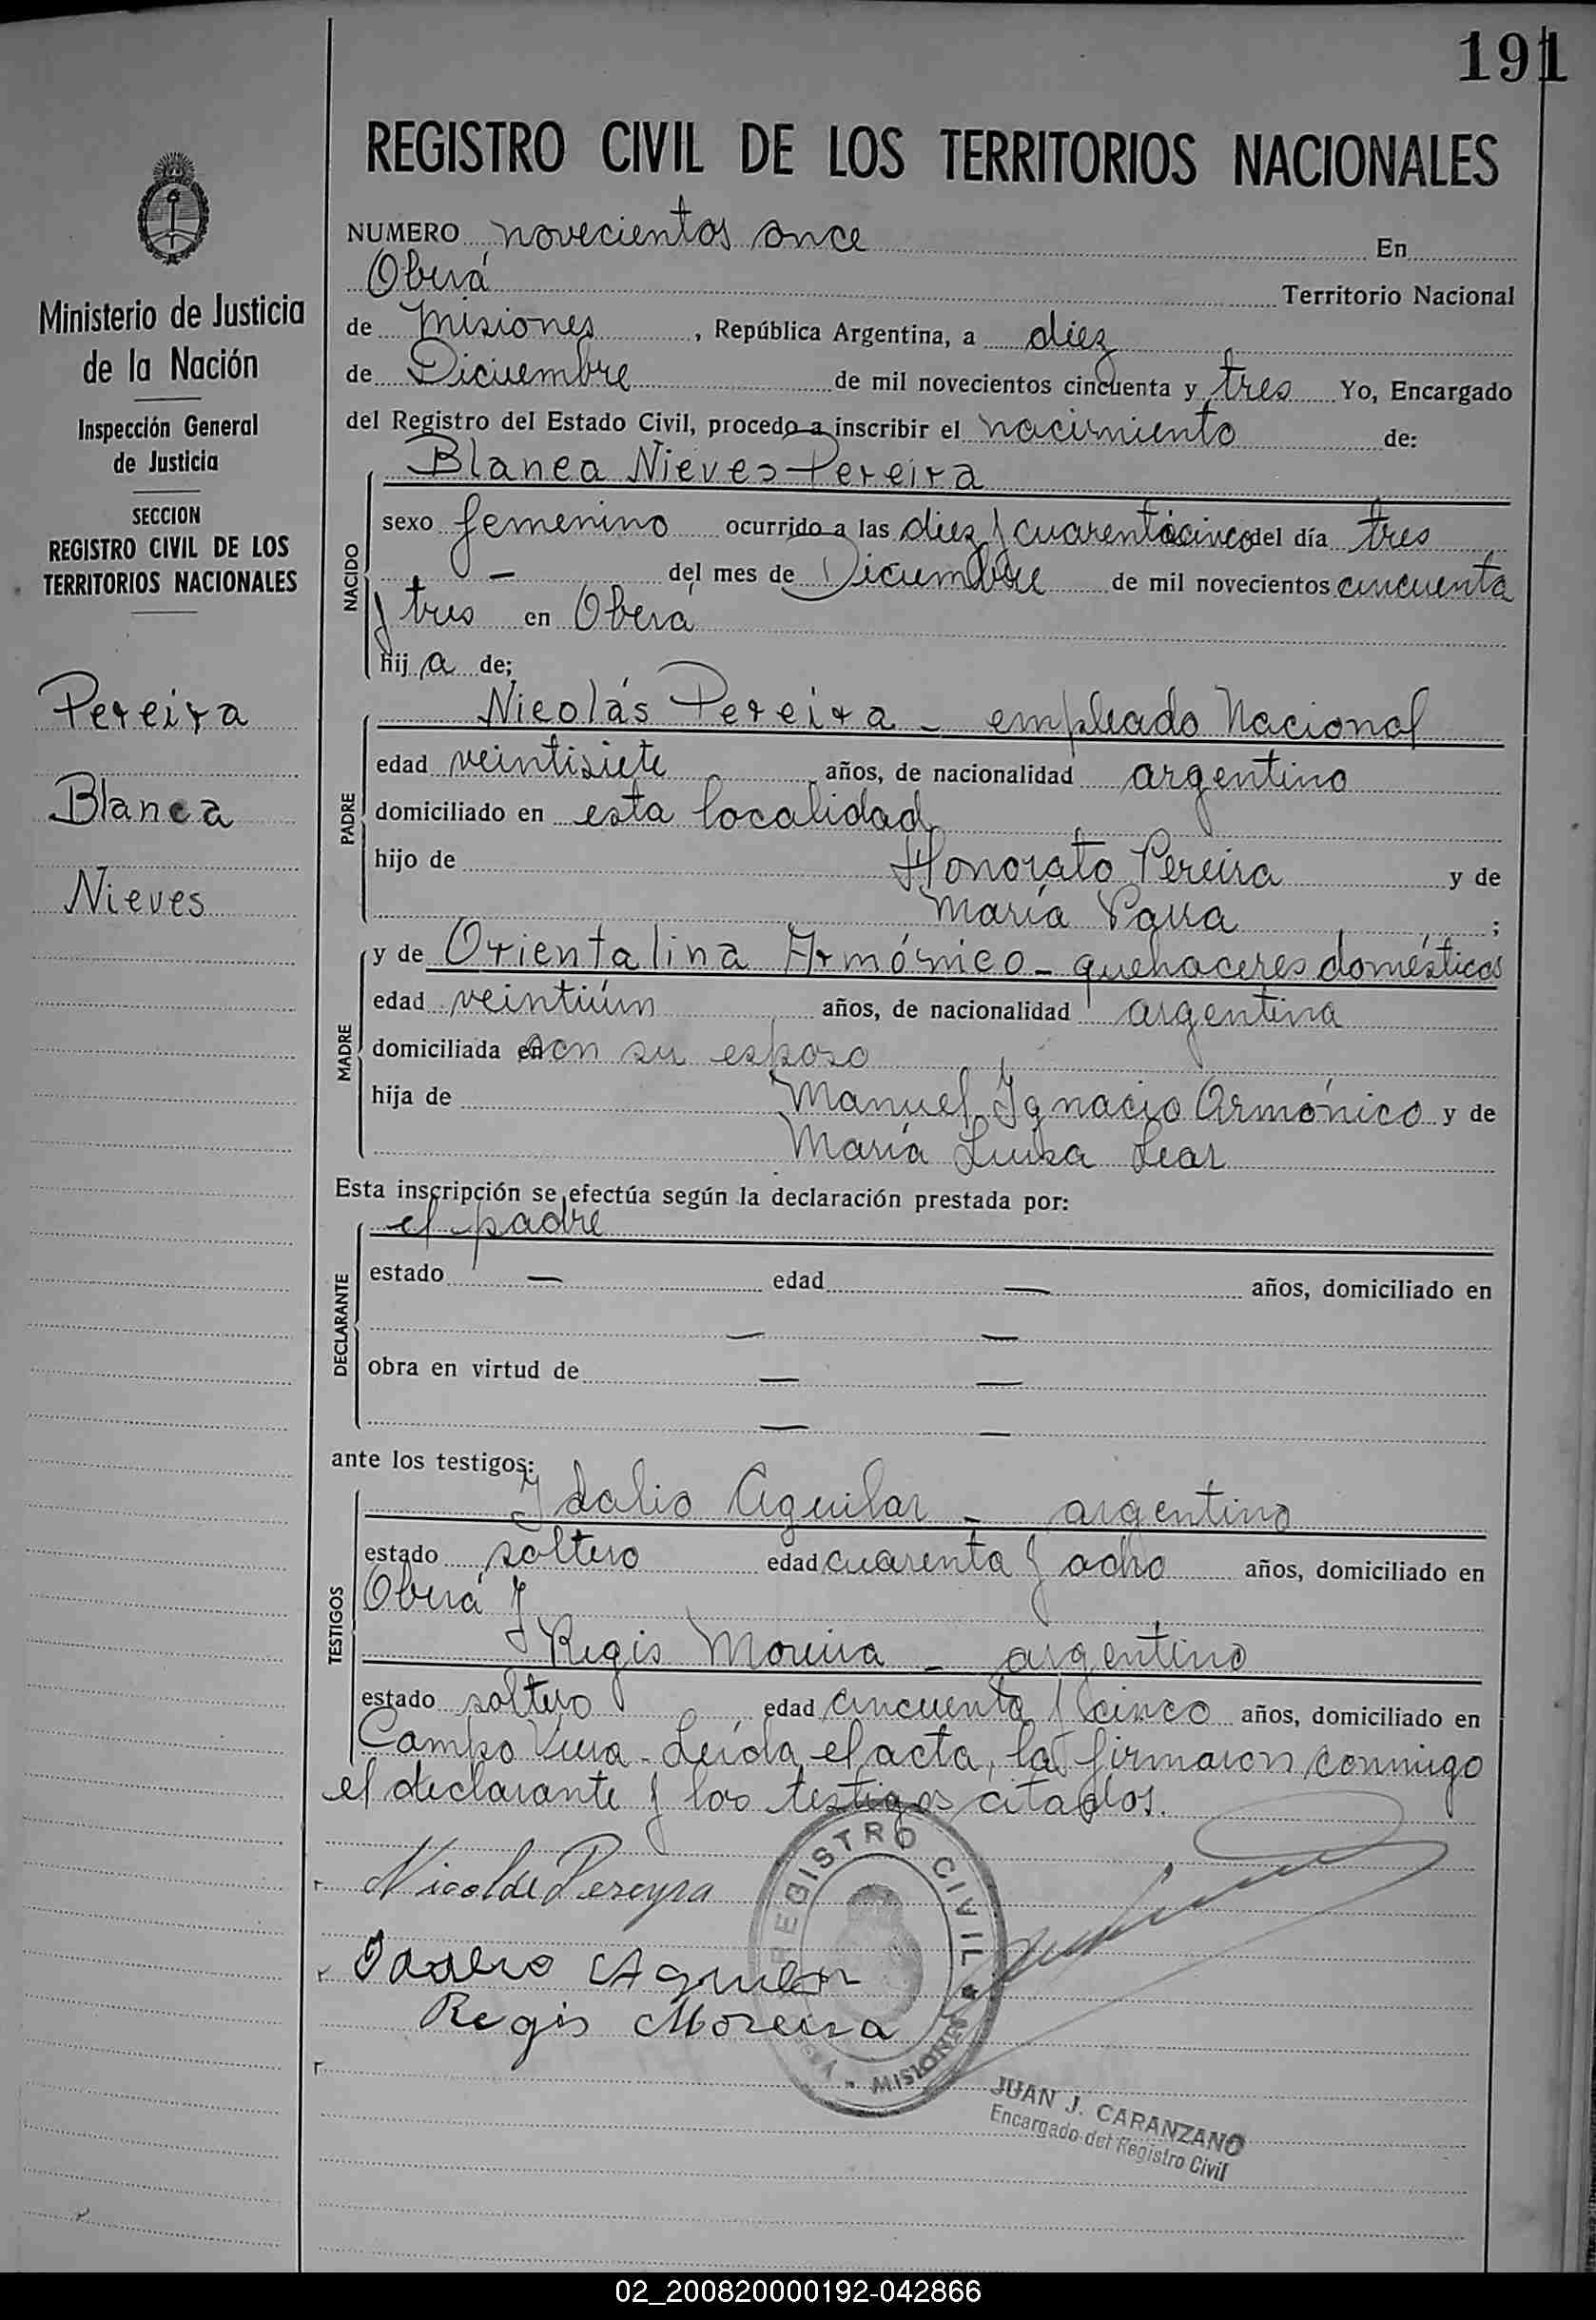 191
REGISTRO CIVIL DE LOS TERRITORIOS NACIONALES
Ministerio de Justicia
de la Nación
Inspección General
de Justicia
SECCION
REGISTRO CIVIL DE LOS
TERRITORIOS NACIONALES
Pereira
Blanca
Nieves
NUMERO novecientos once En
Oberá Territorio Nacional
de Misiones, República Argentina, a diez
de Diciembre de mil novecientos cincuenta y tres Yo, Encargado
del Registro del Estado Civil, procedo a inscribir el nacimiento de:
NACIDO
Blanca Nieves Pereira
sexo femenino ocurrido a las diez y cuarenticinco del día tres
— del mes de Diciembre de mil novecientos cincuenta
y tres en Oberá
hij a de;
PADRE
Nicolás Pereira - empleado Nacional
edad veintisiete años, de nacionalidad argentino
domiciliado en esta localidad
hijo de Honorato Pereira y de
María ;
MADRE
y de Orientalina Armónico - quehaceres domésticos
edad veintiún años, de nacionalidad argentina
domiciliada en con su esposo
hija de Manuel Ignacio Armónico y de
María Luisa Lear
Esta inscripción se efectúa según la declaración prestada por:
DECLARANTE
el padre
estado — edad — años, domiciliado en
— —
obra en virtud de — —
— —
ante los testigos:
TESTIGOS
Idalio Aguilar - argentino
estado soltero edad cuarenta y ocho años, domiciliado en
Oberá y
Regis Moreira - argentino
estado soltero edad cincuenta y cinco años, domiciliado en
Campo Viera - Leída el acta, la firmaron conmigo
el declarante y los testigos citados.
Pereyra
REGISTRO CIVIL
MISIONES
Regis Moreira
JUAN J. CARANZANO
Encargado del Registro Civil
02_200820000192-042866